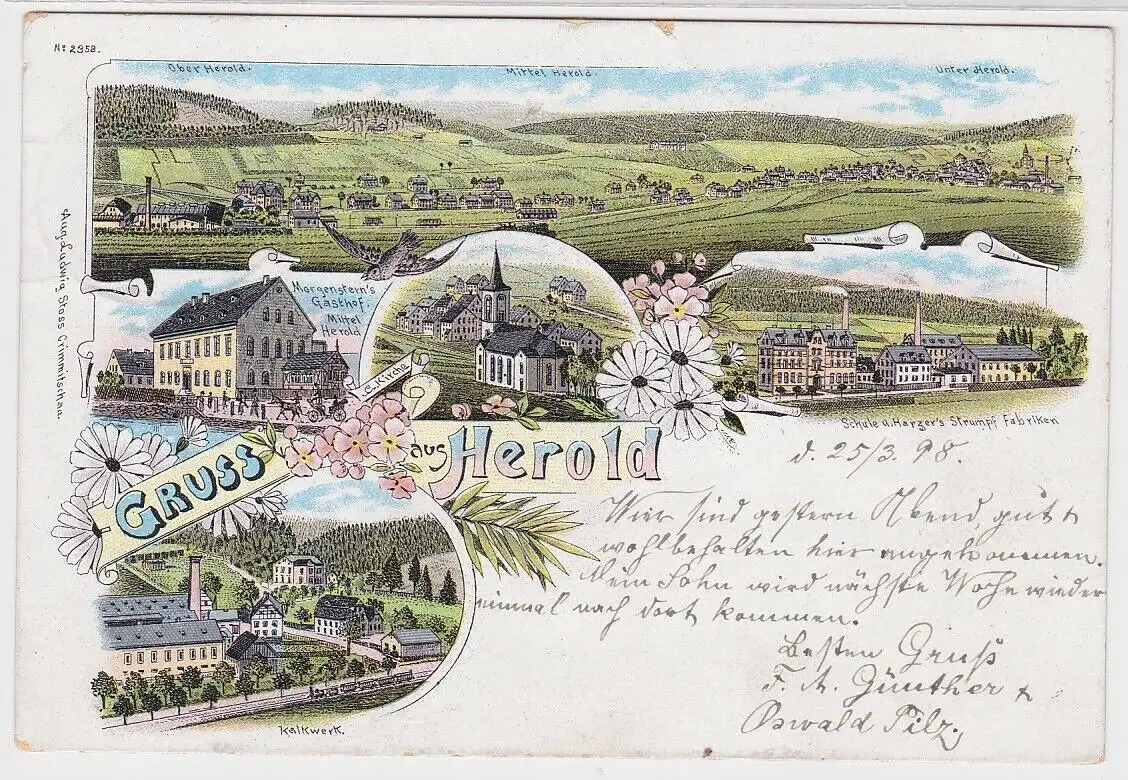 No 2958.
Ober Herold.
Mittel Herold
Unter Herold.
Aug. Ludwig Stoss Crimmitschau.
Morgenstern's
Gasthof.
Mittel
Herold
Kirche
Schule u. Harzer's Strumpf Fabriken
GRUSS
aus Herold
Kalkwerk.
d. 25/3. 98.
Wir sind gestern Abend, gut &
wohlbehalten hier angekommen.
Mein Sohn wird nächste Woche wieder
einmal nach dort kommen.
Besten Gruß
F. A. Günther &
Oswald Pilz.